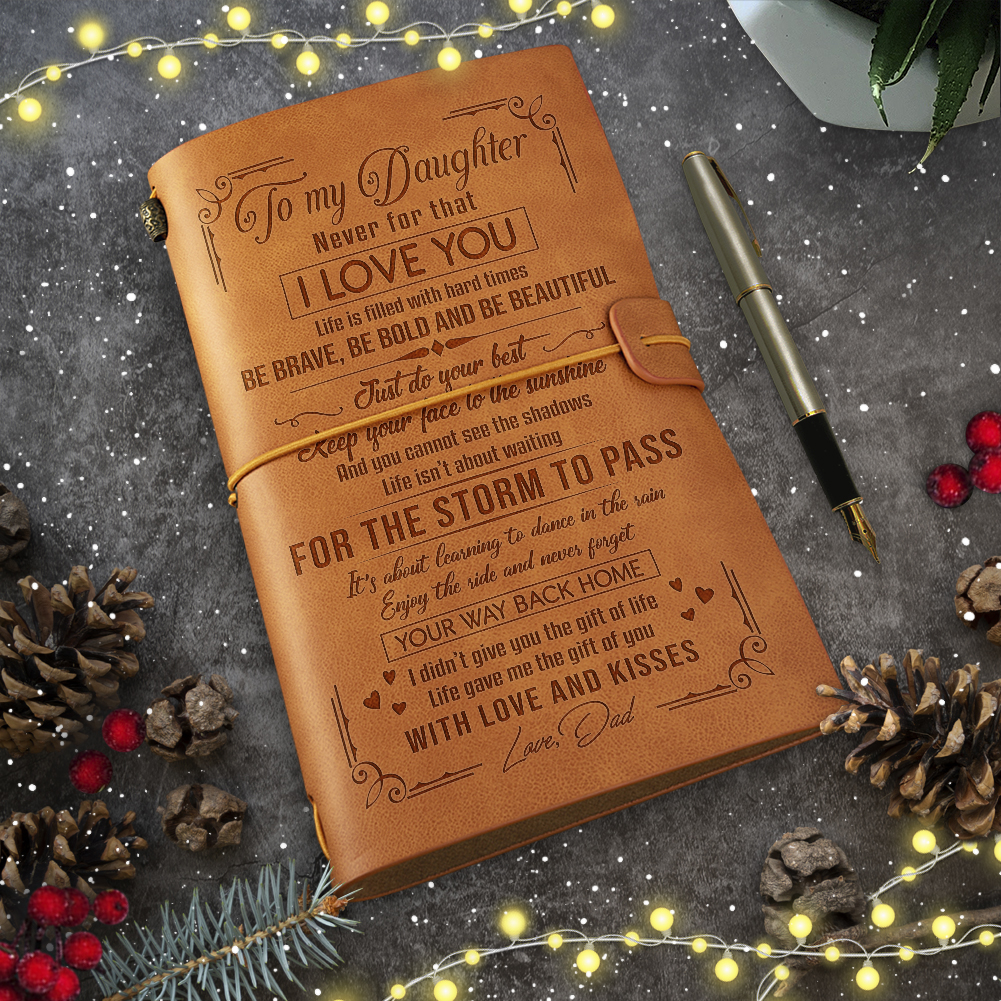 To my Daughter
Never for that
I LOVE YOU
Life is filled with hard times
BE BRAVE, BE BOLD AND BE BEAUTIFUL
Just do your best
Keep your face to the sunshine
And you cannot see the shadows
Life isn't about waiting
FOR THE STORM TO PASS
It's about learning to dance in the rain
Enjoy the ride and never forget
YOUR WAY BACK HOME
I didn't give you the gift of life
Life gave me the gift of you
WITH LOVE AND KISSES
Love, Dad